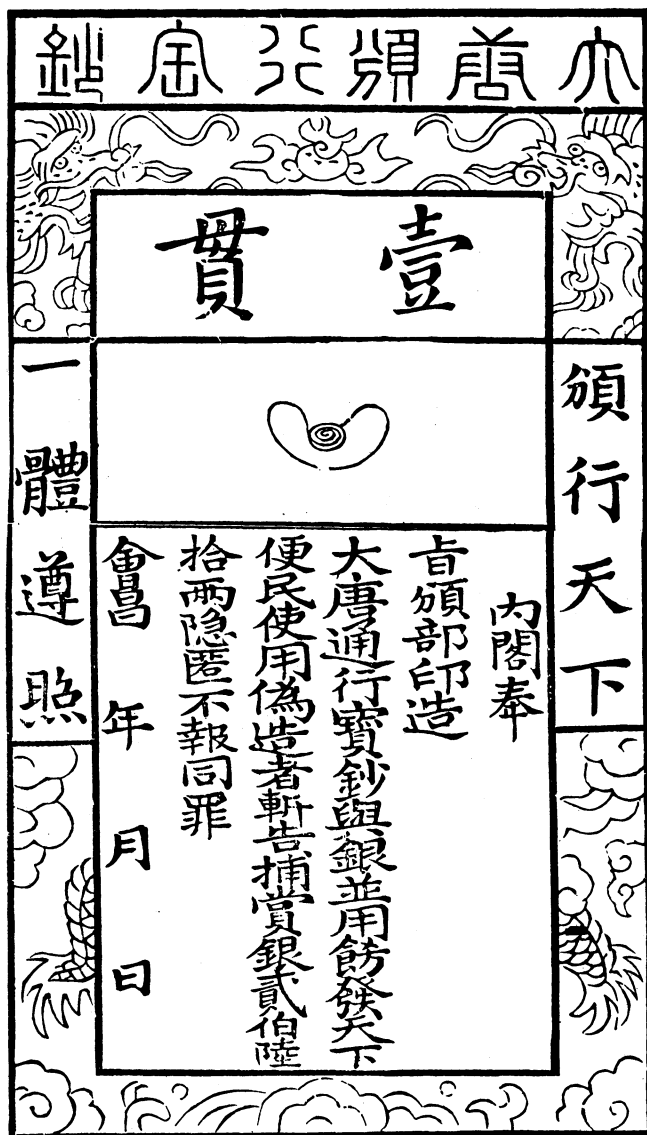 大唐頒行宝鈔
壹貫
頒行天下
一體遵照
內閣奉
旨頒部印造
大唐通行寶鈔與銀並用餝發天下
便民使用偽造者斬告捕賞銀貳伯陸
拾兩隐匿不報同罪
會昌 年 月 日